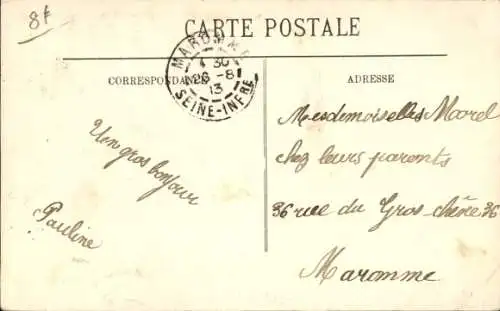 8f
CARTE POSTALE
MAROMME
4 30
26 -8
13
SEINE-INFRE
CORRESPONDANCE
ADRESSE
Un gros bonjour
Pauline
Mesdemoiselles Morel
chez leurs parents
36 rue du Gros-chêne 36
Maromme